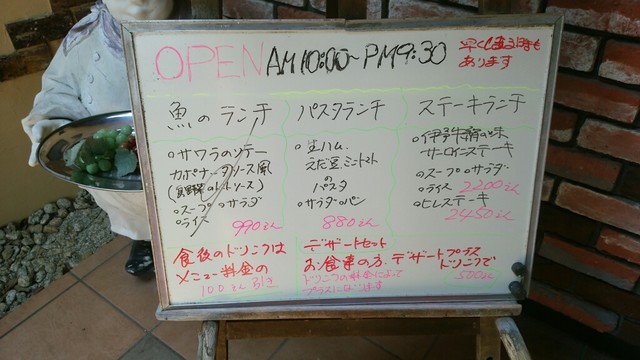 OPEN AM10:00~PM9:30
早く閉まる時も
あります
魚のランチ
○サワラのソテー
カポナータソース風
○スープ ○サラダ
○ライス
990えん
パスタランチ
○生ハム、
えだ豆、ミニトマト
の
パスタ
○サラダ ○パン
880えん
ステーキランチ
○伊予牛
サーロインステーキ
○スープ ○サラダ
○ライス 2200えん
○ヒレステーキ
2450えん
食後のドリンクは
メニュー料金の
100えん引き
デザートセット
お食事の方、デザートプラス
ドリンクで
500えん
ドリンクの料金によって
プラスになります